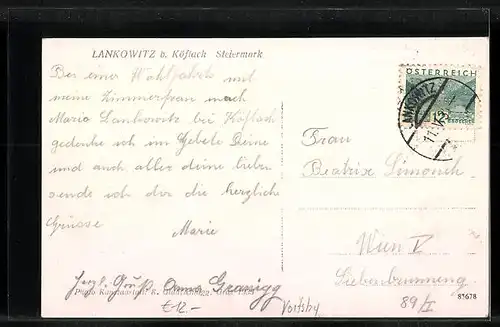 LANKOWITZ b. Köflach Steiermark
Bei einer Wahlfahrt mit
meine Zimmerfrau nach
Maria Lankowitz bei Köflach
gedenke ich im Gebete Deine
und auch aller deine lieben
sende ich dir die herzliche
Grüsse
Marie
Herzl. Gruß Anna Granigg
€12.-
Voitsby
ÖSTERREICH
LANKOWITZ
Frau
Beatrix Simonch
Wien V
Siebenbrunneng
89/I
83678